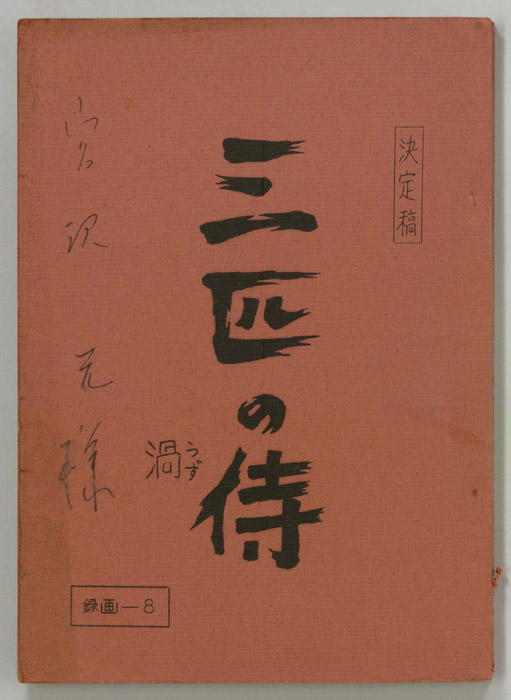 決定稿
三匹の侍
渦
うず
宮沢 元様
録画—8